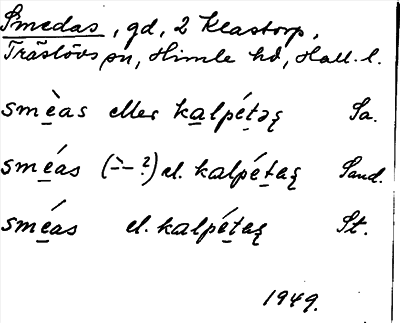 Smedas, gd, 2 Klastorp,
Träslövs sn, Himle hd, Hall. l.
smèas eller kalpétəʂ Sa.
sméas (`-- ?) el. kalpétaʂ Sand.
sméas el. kalpétaʂ St.
1949.